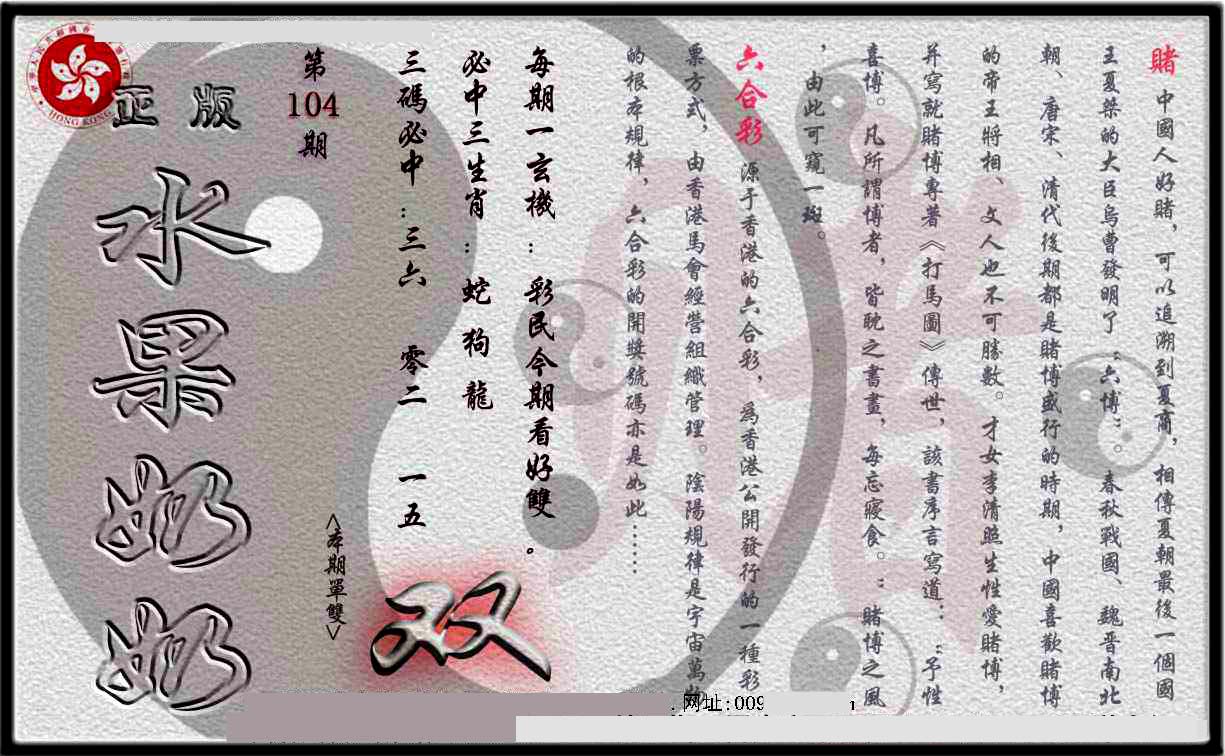 賭 中國人好賭，可以追溯到夏商，相傳夏朝最後一個國
王夏桀的大臣烏曹發明了“六博”。春秋戰國、魏晋南北
朝、唐宋、清代後期都是賭博盛行的時期，中國喜歡賭博
的帝王將相、文人也不可勝數。才女李清照生性愛賭博，
并寫就賭博專著《打馬圖》傳世，該書序言寫道：“予性
喜博。凡所謂博者，皆耽之書畫，每忘寢食。”賭博之風
，由此可窺一斑。
六合彩 源于香港的六合彩，爲香港公開發行的一種彩
票方式，由香港馬會經營組織管理。陰陽規律是宇宙萬物
的根本規律，六合彩的開獎號碼亦是如此……
每期一玄機：彩民今期看好雙。
必中三生肖：蛇 狗 龍
三碼必中：三六 零二 一五
双
<本期單雙>
第
104
期
正版
水果奶奶
HONG KONG
网址:009